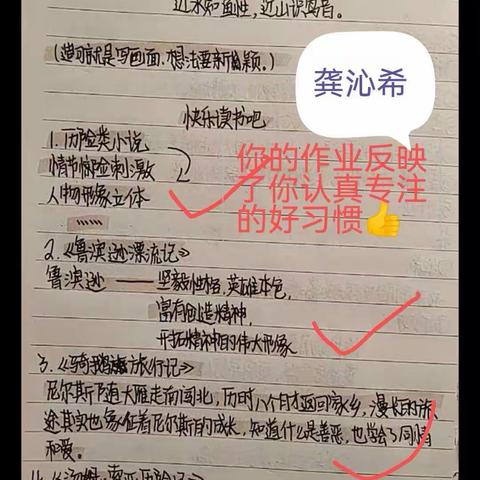 近水知鱼性,近山识鸟音。
龚沁希
快乐读书吧
1.历险类小说
情节惊险刺激
人物形象立体
……
你的作业反映
了你认真专注
的好习惯👍
2.《鲁滨逊漂流记》
鲁滨逊——坚毅性格,英雄本色,
富有创造精神,
开拓精神的伟大形象
3.《骑鹅旅行记》
尼尔斯随大雁走南闯北,历时八个月才返回家乡,漫长的旅
途其实也象征着尼尔斯的成长,知道什么是善恶,也学会了同情
和爱。